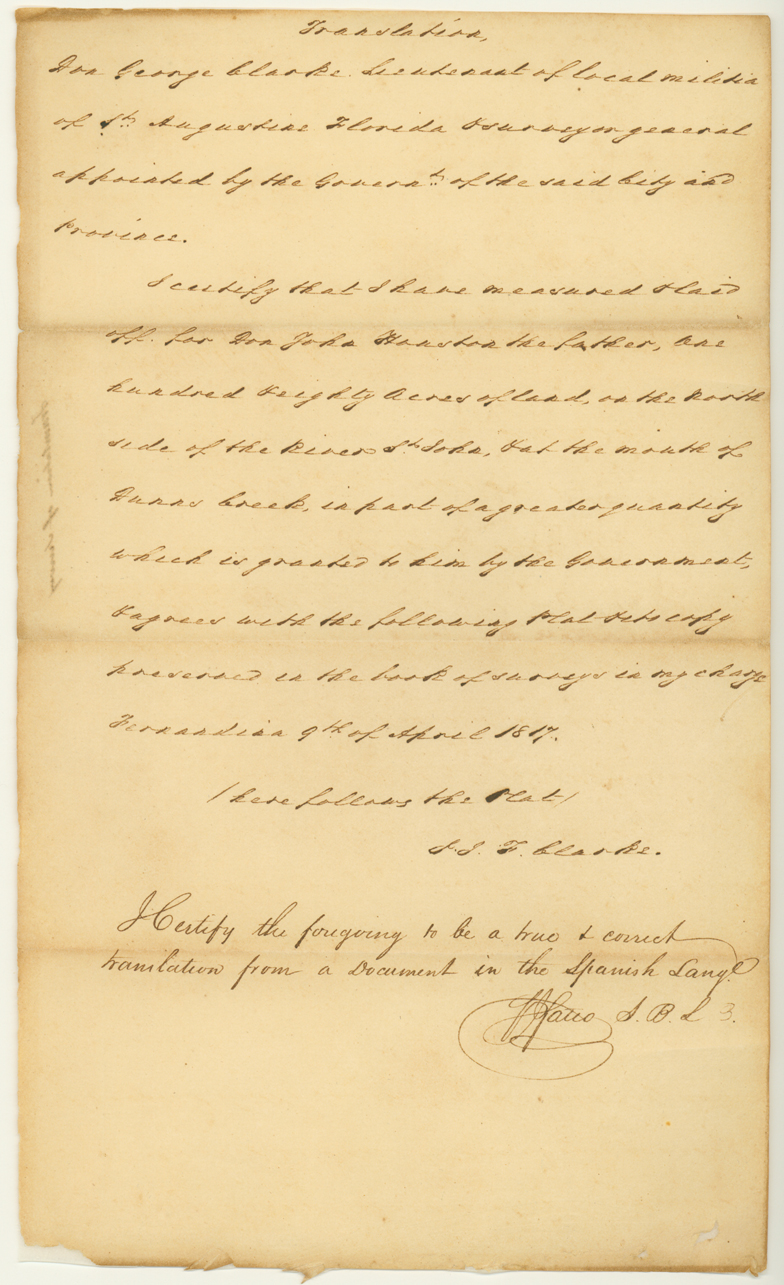 Translation,
Don George Clarke Lieutenant of local militia
of St. Augustine Florida & surveyor general
appointed by the Governt. of the said City and
Province.
I certify that I have measured & laid
off. for Don John Houston the father, One
hundred & eighty Acres of land, on the North
side of the River St. John, & at the mouth of
Dunns Creek, in part of a greater quantity
which is granted to him by the Government,
& agrees with the following Plat & its copy
preserved in the book of surveys in my charge
Fernandina 9th of April 1817.
/ here follows the Plat /
Clarke.
I Certify the foregoing to be a true & correct
translation from a Document in the Spanish Lange.